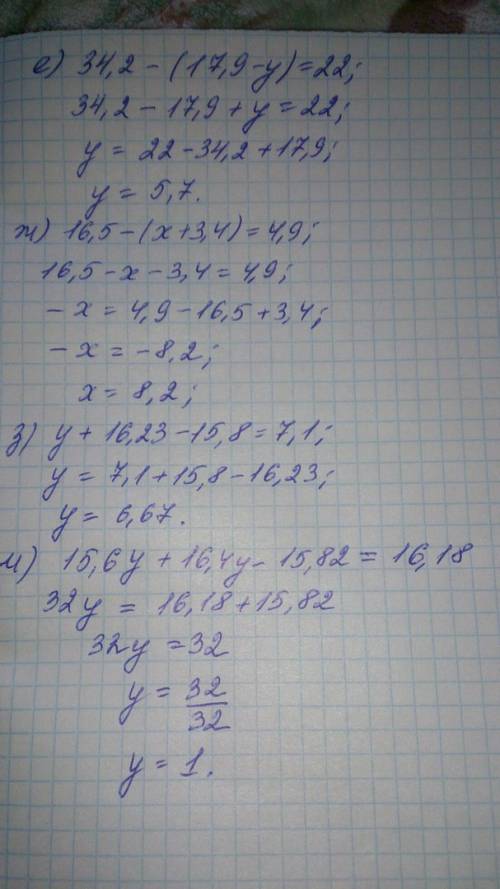 е) 34,2 - (17,9-y) = 22;
34,2 - 17,9 + y = 22;
y = 22 - 34,2 + 17,9;
y = 5,7.
ж) 16,5 - (x + 3,4) = 4,9;
16,5 - x - 3,4 = 4,9;
- x = 4,9 - 16,5 + 3,4;
- x = - 8,2;
x = 8,2;
з) y + 16,23 - 15,8 = 7,1;
y = 7,1 + 15,8 - 16,23;
y = 6,67.
м) 15,6y + 16,4y - 15,82 = 16,18
32y = 16,18 + 15,82
32y = 32
y = 32/32
y = 1.